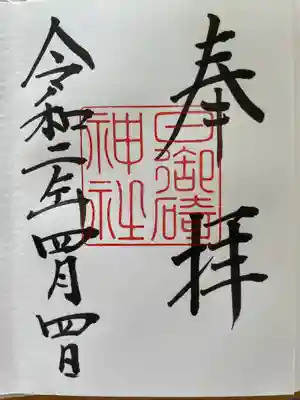 奉拝
日御碕
神社
令和二年四月四日